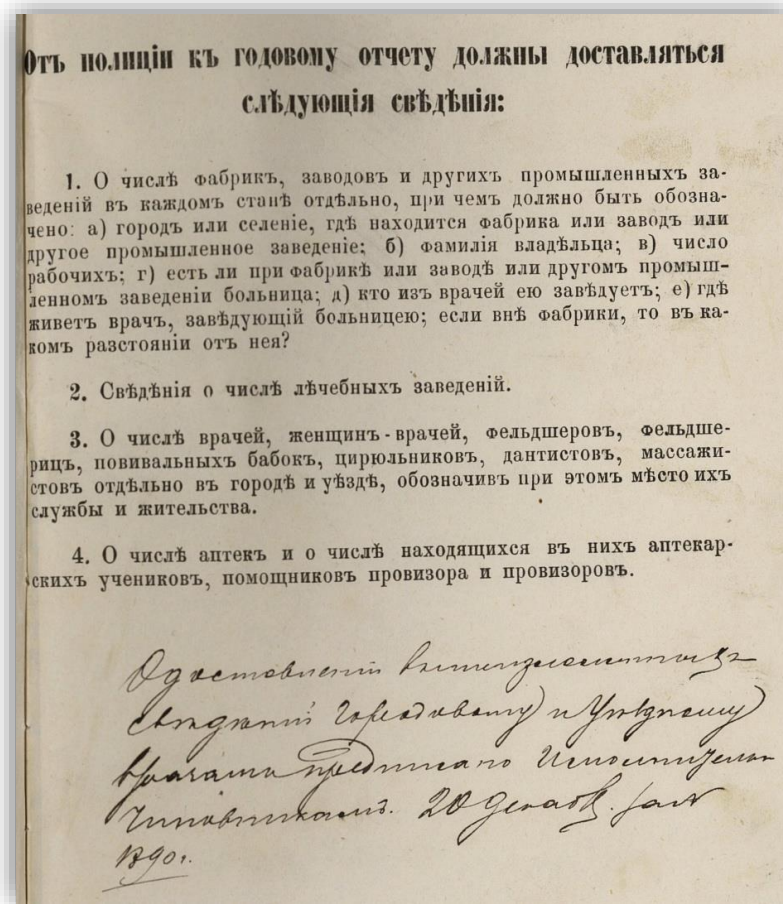 Отъ полиціи къ годовому отчету должны доставляться
слѣдующія свѣдѣнія:
1. О числѣ фабрик, заводов и других промышленныхъ за-
веденій въ каждом станѣ отдѣльно, при чемъ должно быть обозна-
чено: а) городъ или селеніе, гдѣ находится фабрика или завод или
другое промышленное заведеніе; б) фамилія владѣльца; в) число
рабочихъ; г) есть ли при фабрикѣ или заводѣ или другом промыш-
ленном заведеніи больница; д) кто изъ врачей ею завѣдуетъ; е) гдѣ
живетъ врачъ, завѣдующій больницею; если внѣ фабрики, то въ ка-
комъ разстояніи отъ нея?
2. Свѣдѣнія о числѣ лѣчебныхъ заведеній.
3. О числѣ врачей, женщинъ-врачей, фельдшеровъ, фельдше-
рицъ, повивальныхъ бабокъ, цирюльниковъ, дантистовъ, массажи-
стовъ отдѣльно въ городѣ и уѣздѣ, обозначивъ при этомъ мѣсто ихъ
службы и жительства.
4. О числѣ аптекъ и о числѣ находящихся въ нихъ аптекар-
скихъ учениковъ, помощниковъ провизора и провизоровъ.
О доставленіи вышеизложенныхъ
свѣдѣній Городовому и Уѣздному
врачамъ предписано Исполнительн
чиновникамъ. 20 Декабр.
1890 г.